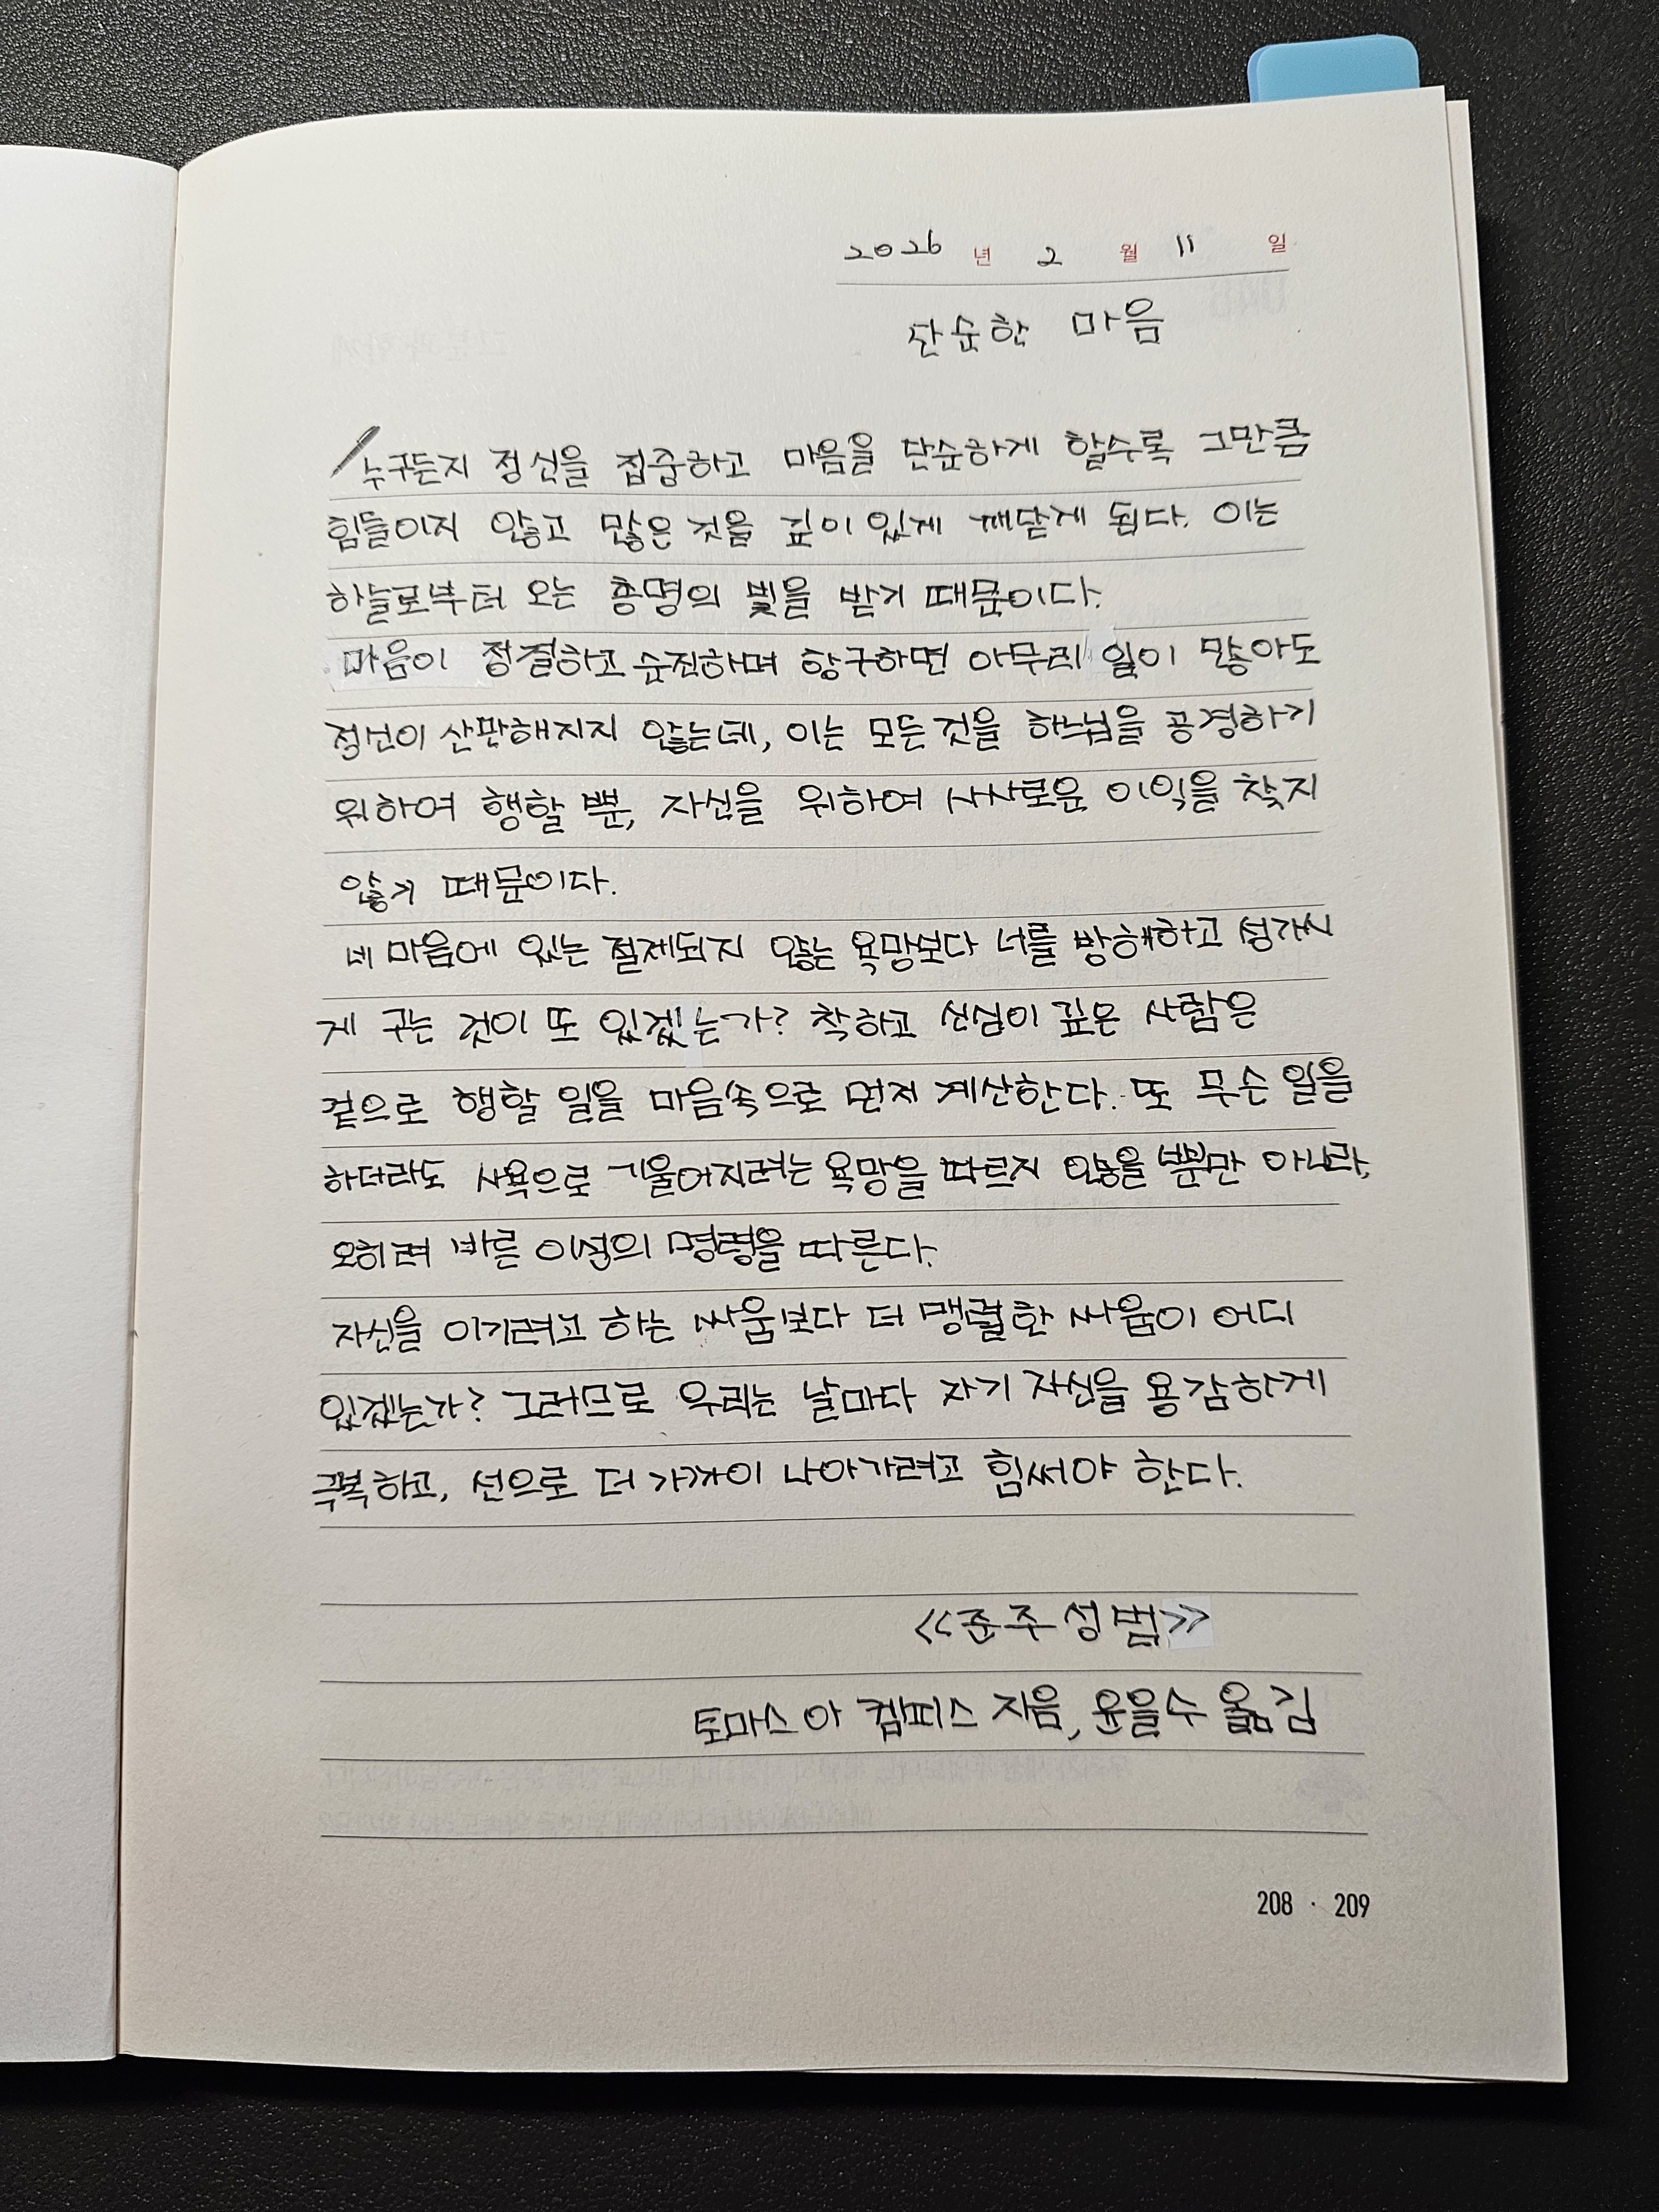 2026 년 2 월 11 일
단순한 마음
누구든지 정신을 집중하고 마음을 단순하게 할수록 그만큼
힘들이지 않고 많은 것을 깊이 있게 깨닫게 된다. 이는
하늘로부터 오는 총명의 빛을 받기 때문이다.
마음이 정결하고 순진하며 항구하면 아무리 일이 많아도
정신이 산만해지지 않는데, 이는 모든 것을 하느님을 공경하기
위하여 행할 뿐, 자신을 위하여 사사로운 이익을 찾지
않기 때문이다.
네 마음에 있는 절제되지 않는 욕망보다 너를 방해하고 성가시
게 구는 것이 또 있겠는가? 착하고 신심이 깊은 사람은
겉으로 행할 일을 마음속으로 먼저 계산한다. 또 무슨 일을
하더라도 사욕으로 기울어지려는 욕망을 따르지 않을 뿐만 아니라,
오히려 바른 이성의 명령을 따른다.
자신을 이기려고 하는 싸움보다 더 맹렬한 싸움이 어디
있겠는가? 그러므로 우리는 날마다 자기 자신을 용감하게
극복하고, 선으로 더 가까이 나아가려고 힘써야 한다.
<<준주성범>>
토마스 아 켐피스 지음, 윤을수 옮김
208 · 209